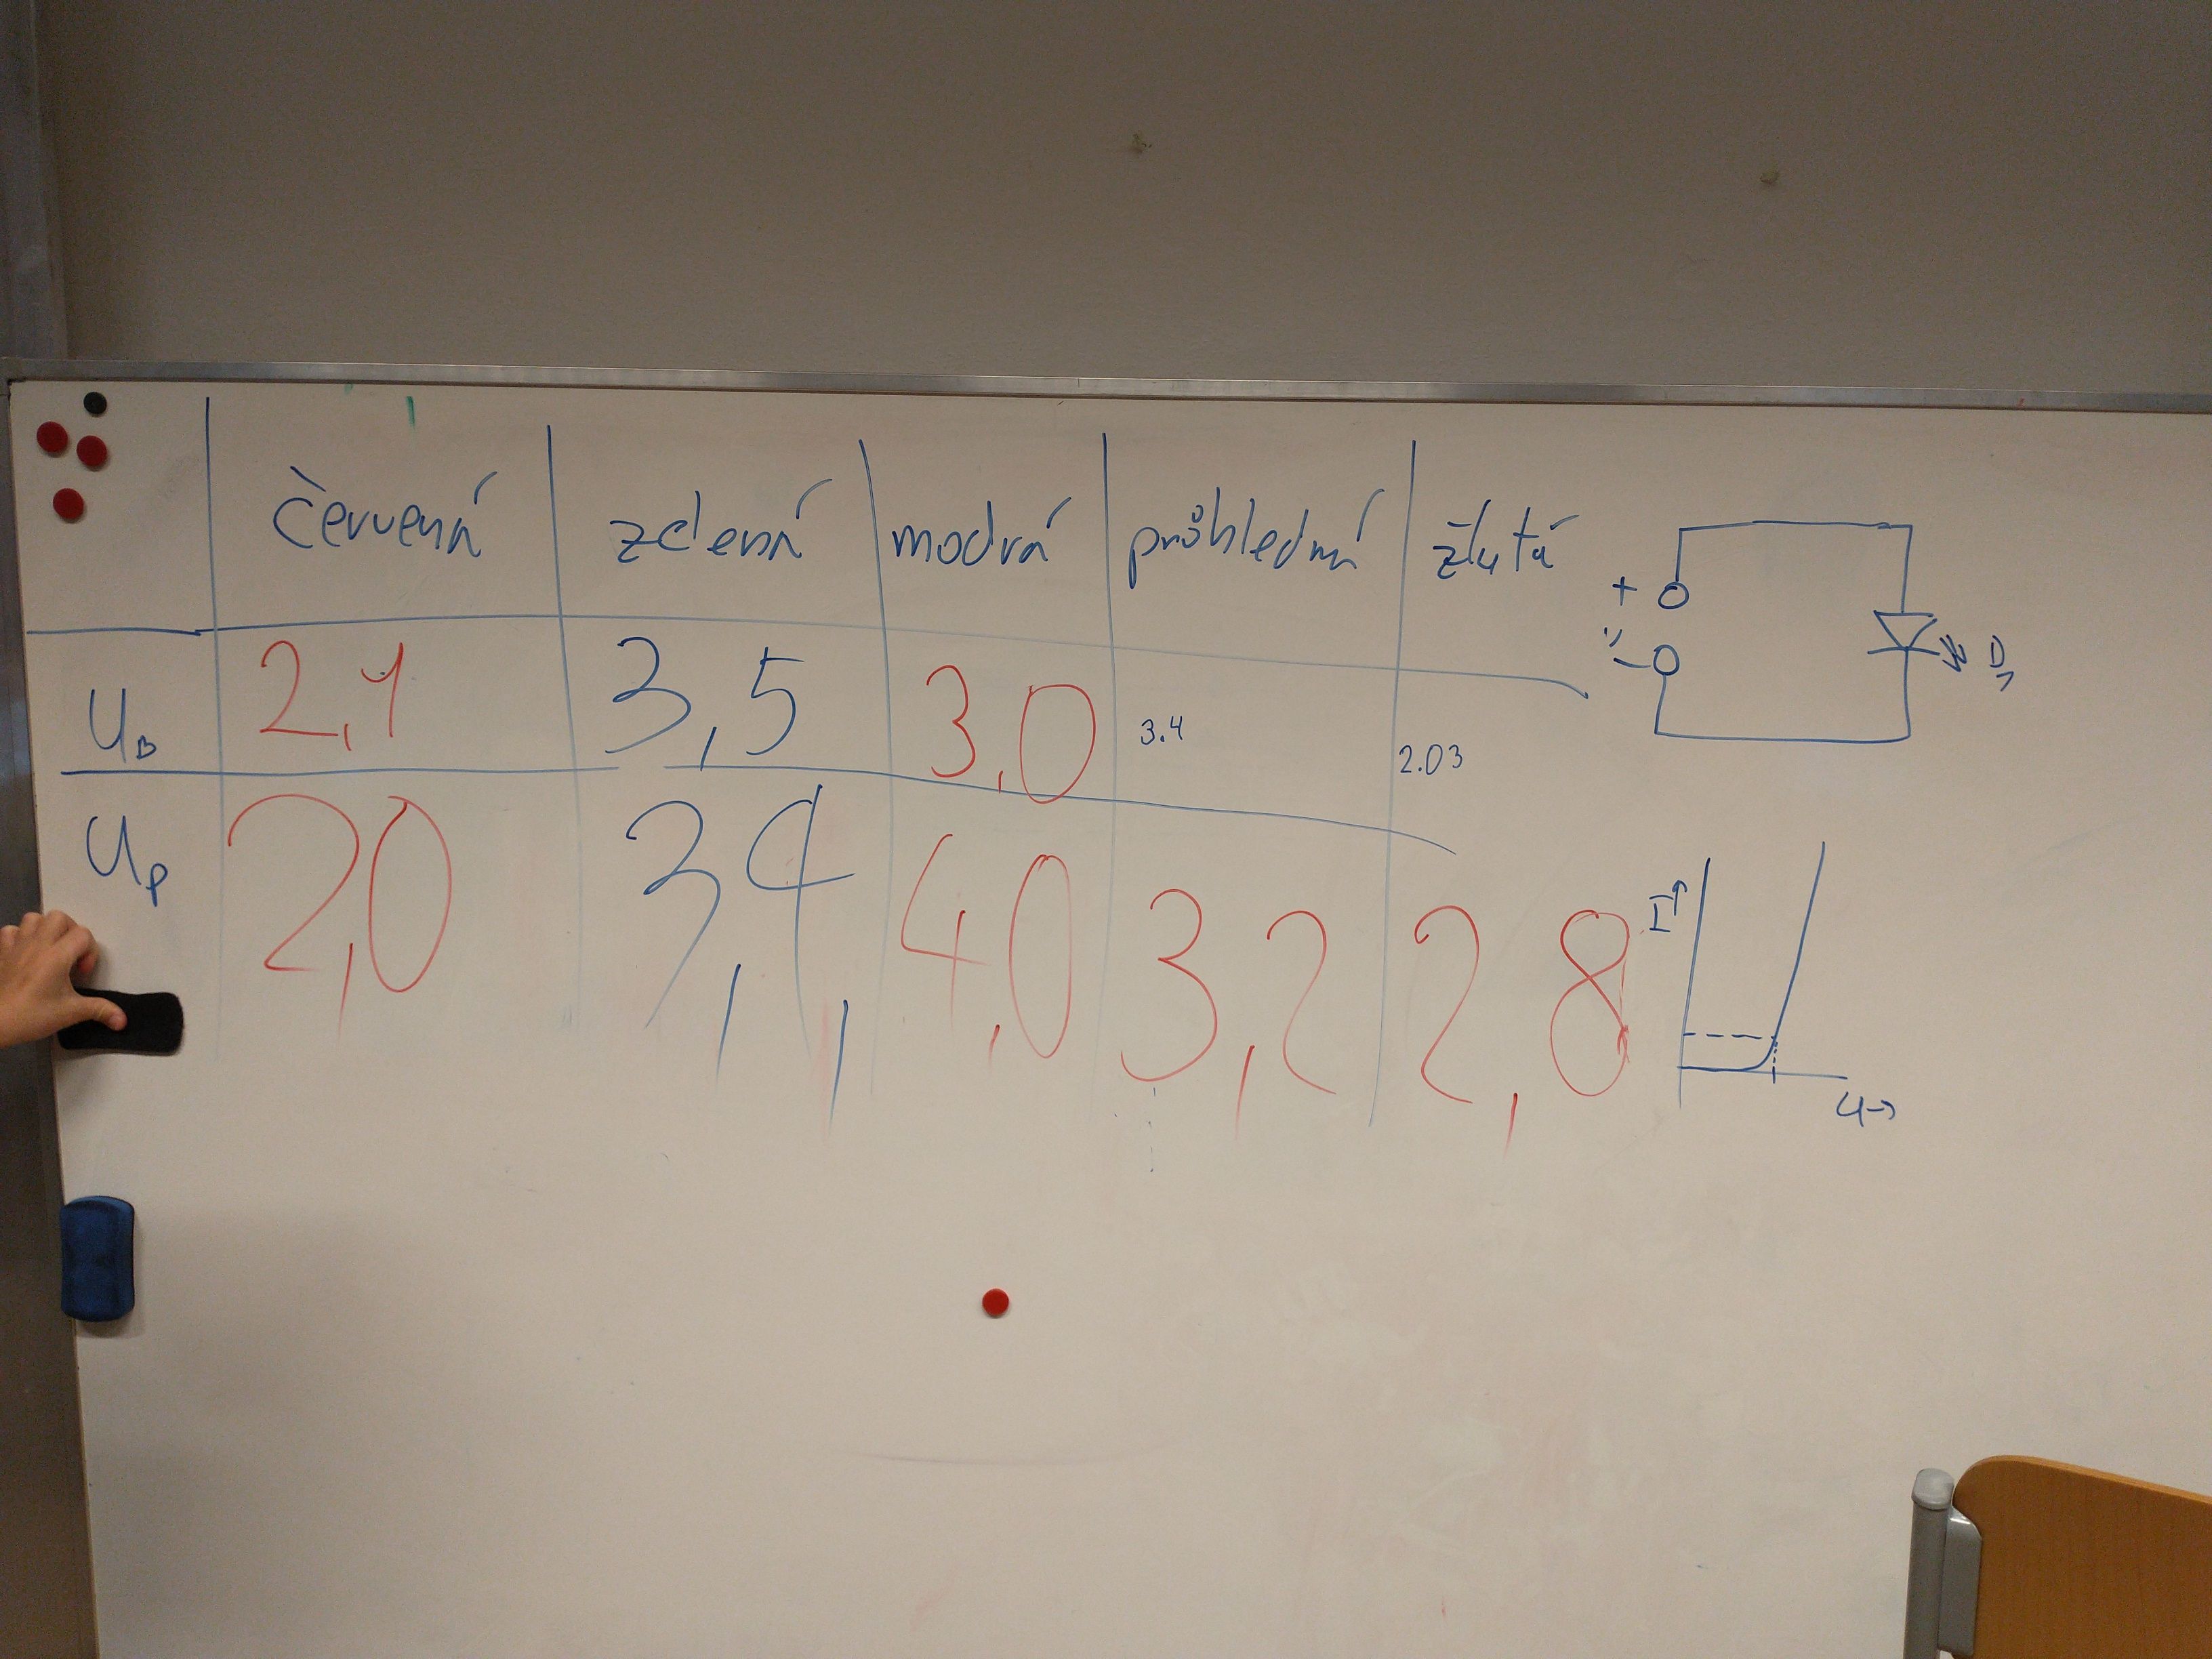 červená zelená modrá průhledná žlutá
U_B 2,1 3,5 3,0 3.4 2.03
U_P 2,0 3,4 4,0 3,2 2,8
+
-
D1
I↑
U→